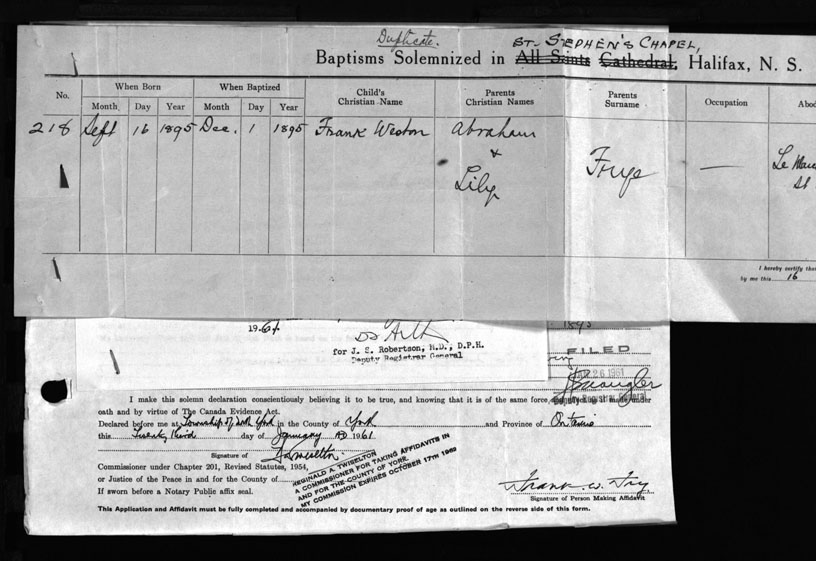 Duplicate.
ST. STEPHEN'S CHAPEL,
Baptisms Solemnized in All Saints Cathedral, Halifax, N. S.
No. When Born When Baptized Child's Christian Name Parents Christian Names Parents Surname Occupation
Month Day Year Month Day Year
218 Sept 16 1895 Dec. 1 1895 Frank Weston Abraham Frye —
&
Lily
St
I hereby certify that
by me this 16
1961
for J. S. Robertson, M.D., D.P.H.
Deputy Registrar General
1895
FILED
26 1961
Deputy Registrar General
I make this solemn declaration conscientiously believing it to be true, and knowing that it is of the same force and effect as if made under
oath and by virtue of The Canada Evidence Act.
Declared before me at Township of North York in the County of York and Province of Ontario
this Twenty Third day of January AD 1961
Signature of
Commissioner under Chapter 201, Revised Statutes, 1954,
or Justice of the Peace in and for the County of
If sworn before a Notary Public affix seal.
REGINALD A. TWISELTON
A COMMISSIONER FOR TAKING AFFIDAVITS IN
AND FOR THE COUNTY OF YORK.
MY COMMISSION EXPIRES OCTOBER 17TH 1962
Frank W. Fry
Signature of Person Making Affidavit
This Application and Affidavit must be fully completed and accompanied by documentary proof of age as outlined on the reverse side of this form.